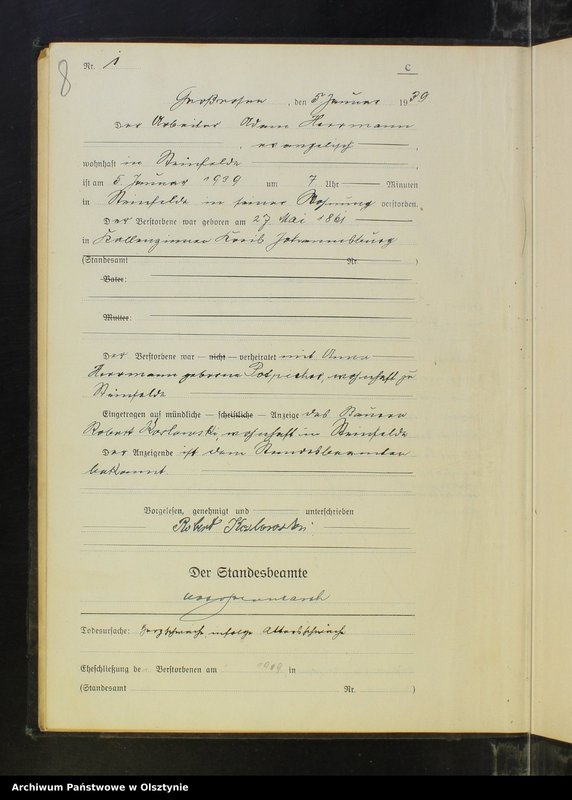 8
Nr. 1
C
Großrosen, den 5 Januar 1939
Der Arbeiter Adam Herrmann
, evangelisch,
wohnhaft in Steinfelde
ist am 5. Januar 1939 um 7 Uhr Minuten
in Steinfelde in seiner Wohnung verstorben.
Der Verstorbene war geboren am 27 Mai 1861
in Kallenzinnen Kreis Johannisburg
(Standesamt Nr. )
Vater:
Mutter:
Der Verstorbene war — nicht — verheiratet mit Anna
Herrmann geborene wohnhaft zu
Steinfelde
Eingetragen auf mündliche — schriftliche — Anzeige des Bauern
Robert Koslowski, wohnhaft in Steinfelde
Der Anzeigende ist dem Standesbeamten
bekannt
Vorgelesen, genehmigt und unterschrieben
Robert Koslowski
Der Standesbeamte
Todesursache: Herzschwäche infolge Altersschwäche
Eheschließung de Verstorbenen am 1909 in
(Standesamt Nr. )
Archiwum Państwowe w Olsztynie